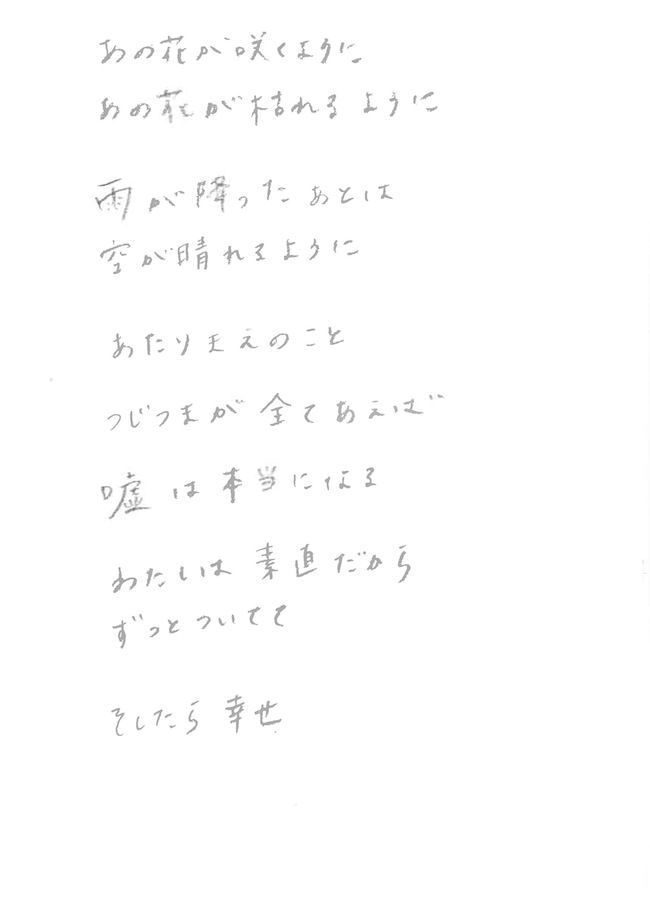 あの花が咲くように
あの花が枯れるように
雨が降ったあとは
空が晴れるように
あたりまえのこと
つじつまが全てあえば
嘘は本当になる
わたしは素直だから
ずっとついてて
そしたら幸せ